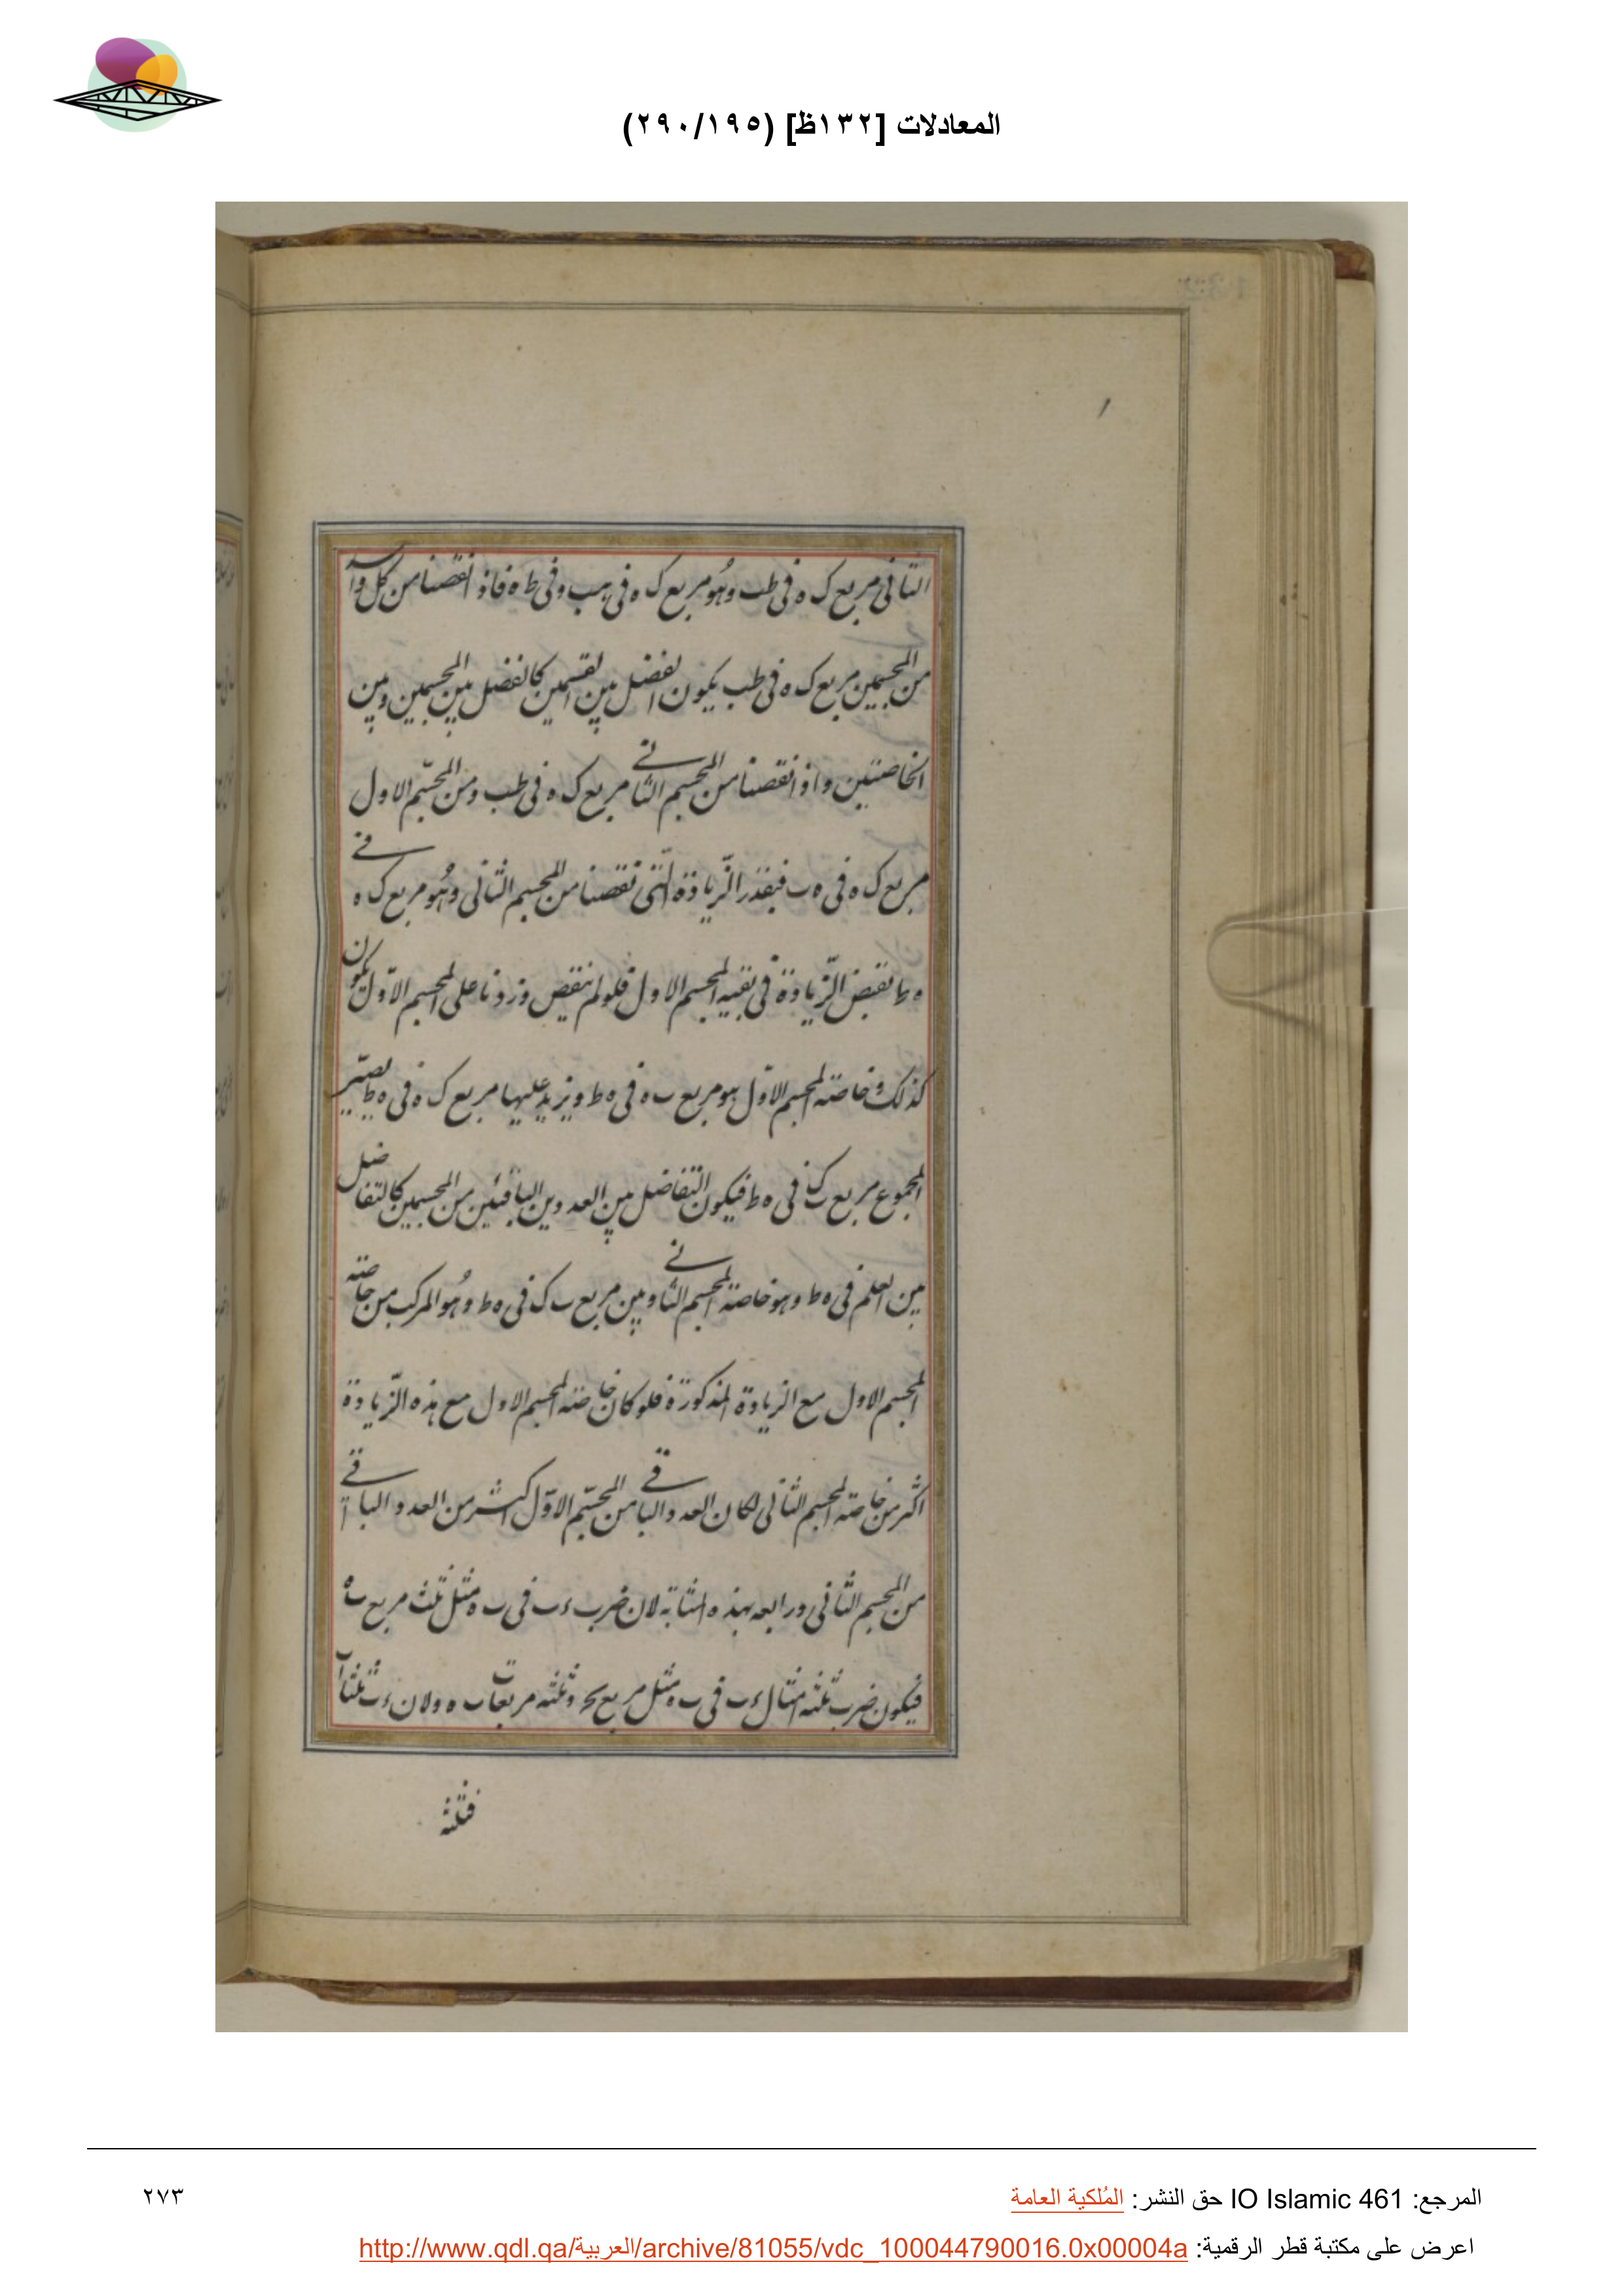 المعادلات [١٣٢ظ] (٢٩٠/١٩٥)
الثانى مربع ك ه فى طب وهو مربع ك ه فى هب وفى ط ه فاذا نقصنا من كل واحد
من المجسمين مربع ك ه فى طب يكون الفضل بين القسمين كالفضل بين المجسمين وبين
الخاصتين واذا نقصنا من المجسم الثانى مربع ك ه فى طب ومن المجسّم الاول
مربع ك ه فى ه ب فبقدر الزّيادة الّتى نقصنا من المجسم الثانى وهو مربع ك ه فى
ه ط الزّيادة فى بقيه المجسم الاول فلو لم ننقص وزدنا على المجسم الاوّل يكون
كذلك وخاصته المجسم الاوّل هو مربع ب ه فى ه ط ويزيد عليها مربع ك ه فى ه ط يصير
المجموع مربع ب ك فى ه ط فيكون التفاضل بين العددين الباقيين من المجسمين كالتفاضل
بين العلم فى ه ط وهو خاصته المجسم الثانى وبين مربع ب ك فى ه ط وهو المركب من خاصته
المجسم الاول مع الزيادة المذكورة فلو كان خاصته المجسم الاول مع هذه الزّيادة
اكثر من خاصته المجسم الثانى لكان العدد الباقى من المجسّم الاوّل اكثر من العدد الباقى
من المجسم الثانى ورابعه بهذه المثابة لان ضرب ء ب فى ب ه مثل ثلث مربع ب ه
فيكون ضرب ثلثه امثال ء ب فى ب ه مثل مربع وثلثه مربعات ب ه ولان ء ب ثلثا
فثلثه
المرجع: IO Islamic 461 حق النشر: المُلكية العامة
٢٧٣
اعرض على مكتبة قطر الرقمية: http://www.qdl.qa/العربية/archive/81055/vdc_100044790016.0x00004a